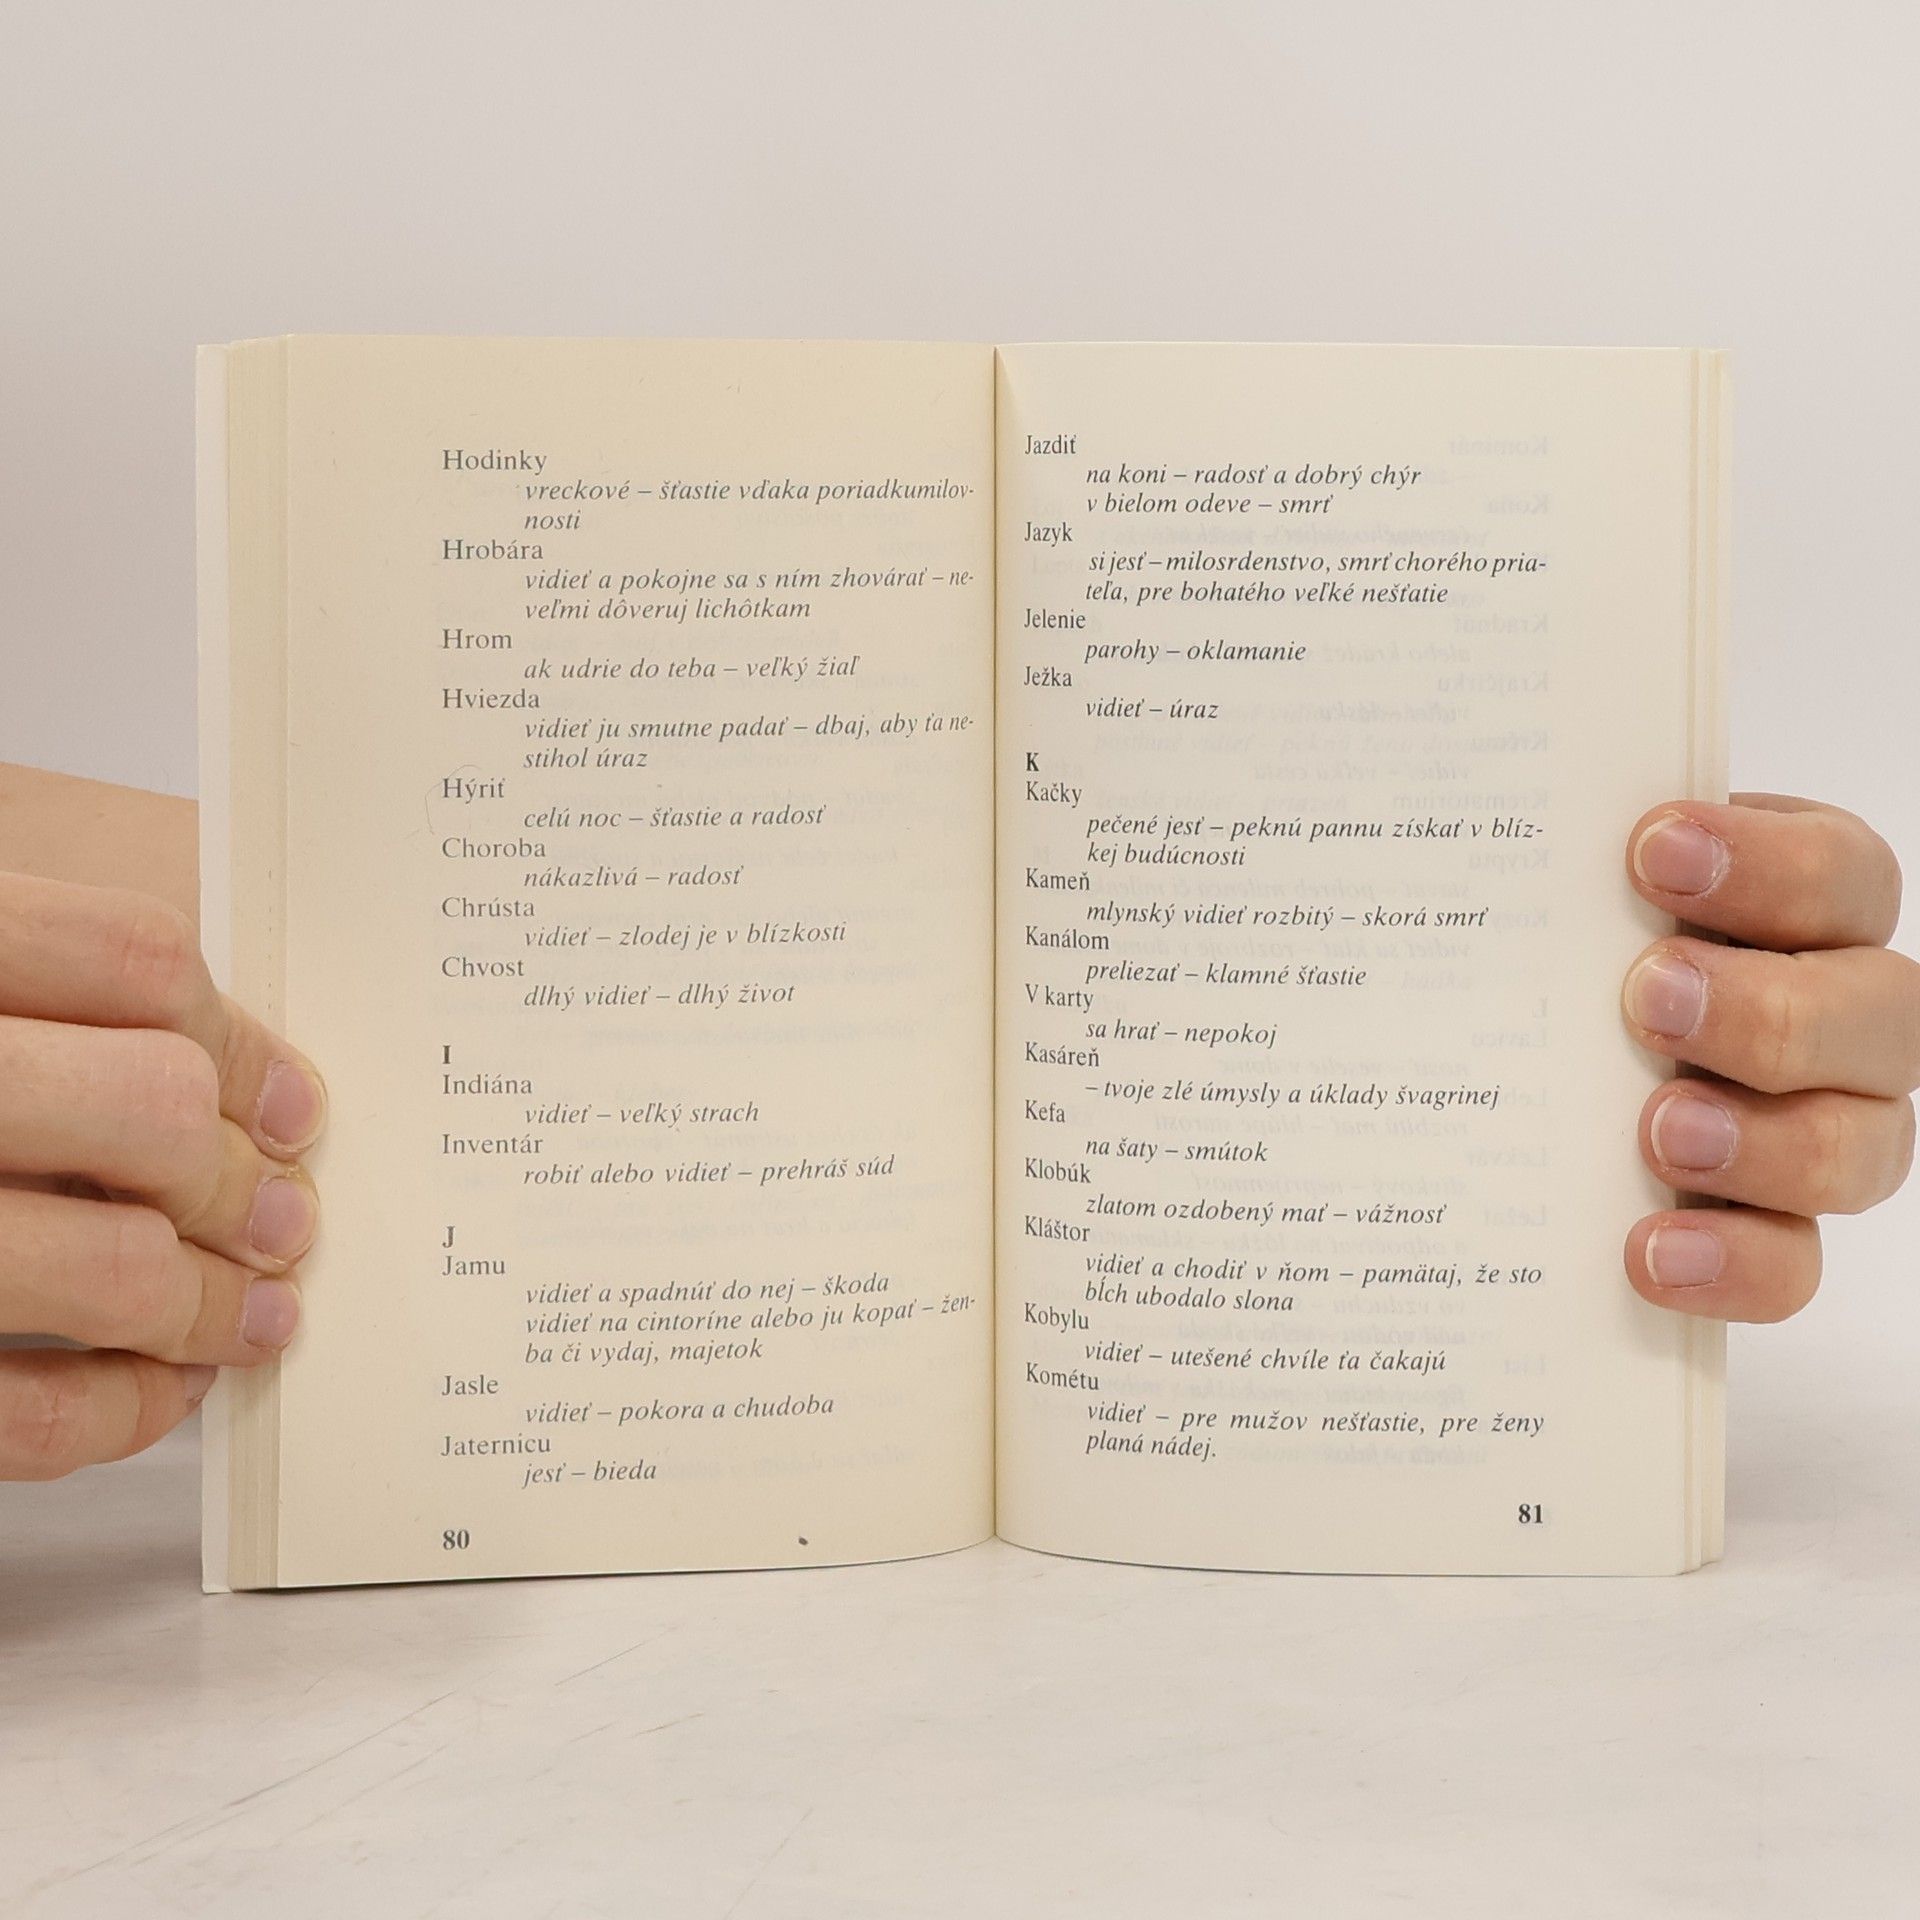 Hodinky
vreckové – šťastie vďaka poriadkumilov-
nosti
Hrobára
vidieť a pokojne sa s ním zhovárať – ne-
veľmi dôveruj lichôtkam
Hrom
ak udrie do teba – veľký žiaľ
Hviezda
vidieť ju smutne padať – dbaj, aby ťa ne-
stihol úraz
Hýriť
celú noc – šťastie a radosť
Choroba
nákazlivá – radosť
Chrústa
vidieť – zlodej je v blízkosti
Chvost
dlhý vidieť – dlhý život
I
Indiána
vidieť – veľký strach
Inventár
robiť alebo vidieť – prehráš súd
J
Jamu
vidieť a spadnúť do nej – škoda
vidieť na cintoríne alebo ju kopať – žen-
ba či vydaj, majetok
Jasle
vidieť – pokora a chudoba
Jaternicu
jesť – bieda
80
Jazdiť
na koni – radosť a dobrý chýr
v bielom odeve – smrť
Jazyk
si jesť – milosrdenstvo, smrť chorého pria-
teľa, pre bohatého veľké nešťatie
Jelenie
parohy – oklamanie
Ježka
vidieť – úraz
K
Kačky
pečené jesť – peknú pannu získať v blíz-
kej budúcnosti
Kameň
mlynský vidieť rozbitý – skorá smrť
Kanálom
preliezať – klamné šťastie
V karty
sa hrať – nepokoj
Kasáreň
– tvoje zlé úmysly a úklady švagrinej
Kefa
na šaty – smútok
Klobúk
zlatom ozdobený mať – vážnosť
Kláštor
vidieť a chodiť v ňom – pamätaj, že sto
bĺch ubodalo slona
Kobylu
vidieť – utešené chvíle ťa čakajú
Kométu
vidieť – pre mužov nešťastie, pre ženy
planá nádej.
81